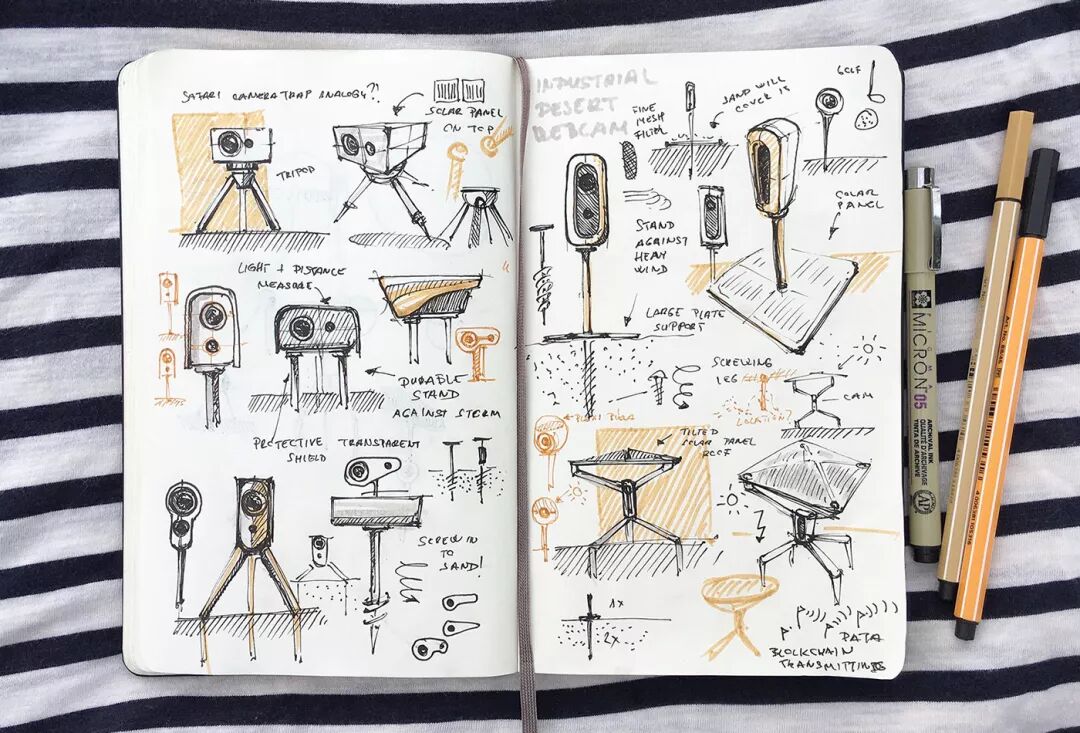 SAFARI CAMERA TRAP ANALOGY?!
SOLAR PANEL
ON TOP
TRIPOD
LIGHT + DISTANCE
MEASURE
DURABLE
STAND
AGAINST STORM
PROTECTIVE TRANSPARENT
SHIELD
SCREW IN
TO
SAND!
INDUSTRIAL
DESERT
WEBCAM
FINE
MESH
FILTER
SAND WILL
COVER IT
GOLF
SOLAR
PANEL
STAND
AGAINST
HEAVY
WIND
LARGE PLATE
SUPPORT
SCREWING
LEG
LOCATION?
CAM
TILTED
SOLAR PANEL
ROOF
1x
2x
DATA
BLOCKCHAIN
TRANSMITTING
SAKURA
PIGMA
MICRON 05
ARCHIVAL INK
QUALITÉ D'ARCHIVAGE
TINTA DE ARCHIVO
AP